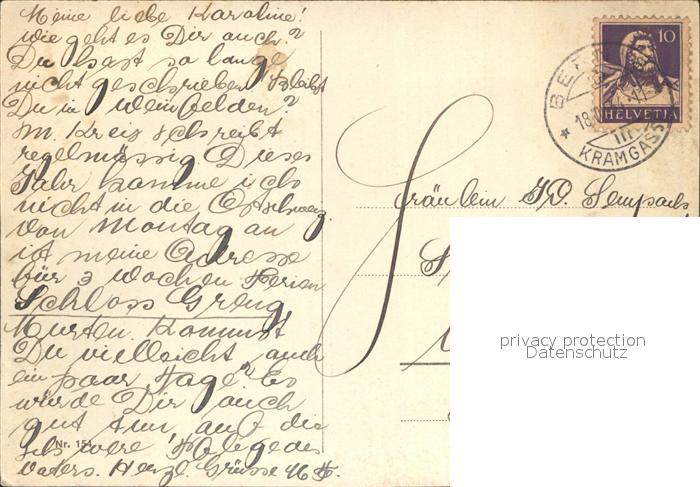 Meine liebe Karoline!
wie geht es Dir auch?
Du hast so lange
nicht geschrieben bleibst
Du in Weinfelden?
M. Kreis schreibt
regelmässig Dieses
Jahr komme ich
nicht in die Ostschweiz
von Montag an
ist meine Adresse
für 3 Wochen Ferien
Schloss Greng
Murten. Kommst
Du vielleicht auch
ein paar Tage? Es
würde Dir auch
gut tun, auf die
des
Vaters. Herzl. Grüsse
Nr. 154
10
HELVETIA
BERN
18.
III
KRAMGASSE
Fräulein
privacy protection
Datenschutz